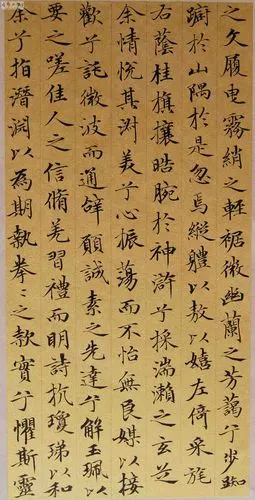 之文履曳霧綃之輕裾微幽蘭之芳藹兮步踟
躕於山隅於是忽焉縱體以敖以嬉左倚采旄
右蔭桂旗攘皓腕於神滸兮採湍瀨之玄芝
余情悅其淑美兮心振蕩而不怡無良媒以接
歡兮託微波而通辭願誠素之先達兮解玉珮以
要之嗟佳人之信脩羌習禮而明詩抗瓊珶以和
余兮指潛淵以為期執拳々之款實兮懼斯靈